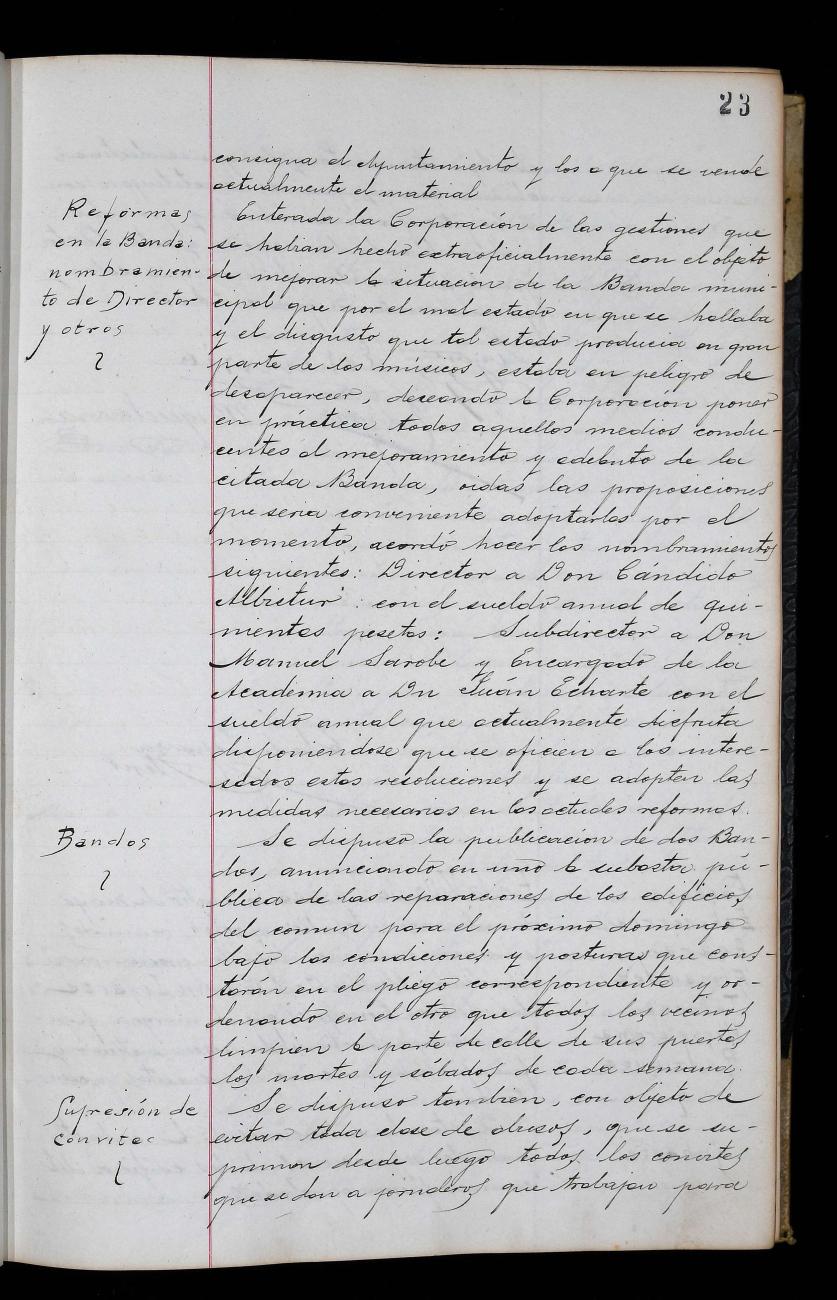 23
consigna el Ayuntamiento y los a que se vende
actualmente el material
Reformas
en la Banda:
nombramien-
to de Director
y otros
Enterada la Corporación de las gestiones que
se habian hecho extraoficialmente con el objeto
de mejorar la situacion de la Banda muni-
cipal que por el mal estado en que se hallaba
y el disgusto que tal estado producia en gran
parte de los músicos, estaba en peligro de
desaparecer, deseando la Corporación poner
en práctica todos aquellos medios condu-
centes al mejoramiento y adelanto de la
citada Banda, oidas las proposiciones
que seria conveniente adoptarlas por el
momento, acordó hacer los nombramientos
siguientes: Director a Don Cándido
Albistur: con el sueldo anual de qui-
nientas pesetas: Subdirector a Don
Manuel Sarobe y Encargado de la
Academia a Dn Juán Echarte con el
sueldo anual que actualmente disfruta
disponiendose que se oficien a los intere-
sados estas resoluciones y se adopten las
medidas necesarias en las actuales reformas.
Bandos
Se dispuso la publicacion de dos Ban-
dos, anunciando en uno la subasta pú-
blica de las reparaciones de los edificios
del comun para el próximo domingo
bajo las condiciones y posturas que cons-
tarán en el pliego correspondiente y or-
denando en el otro que todos los vecinos
limpien la parte de calle de sus puertas
los martes y sábados de cada semana.
Supresión de
convites
Se dispuso tambien, con objeto de
evitar toda clase de abusos, que se su-
priman desde luego todos los convites
que se dan a jornaleros que trabajan para